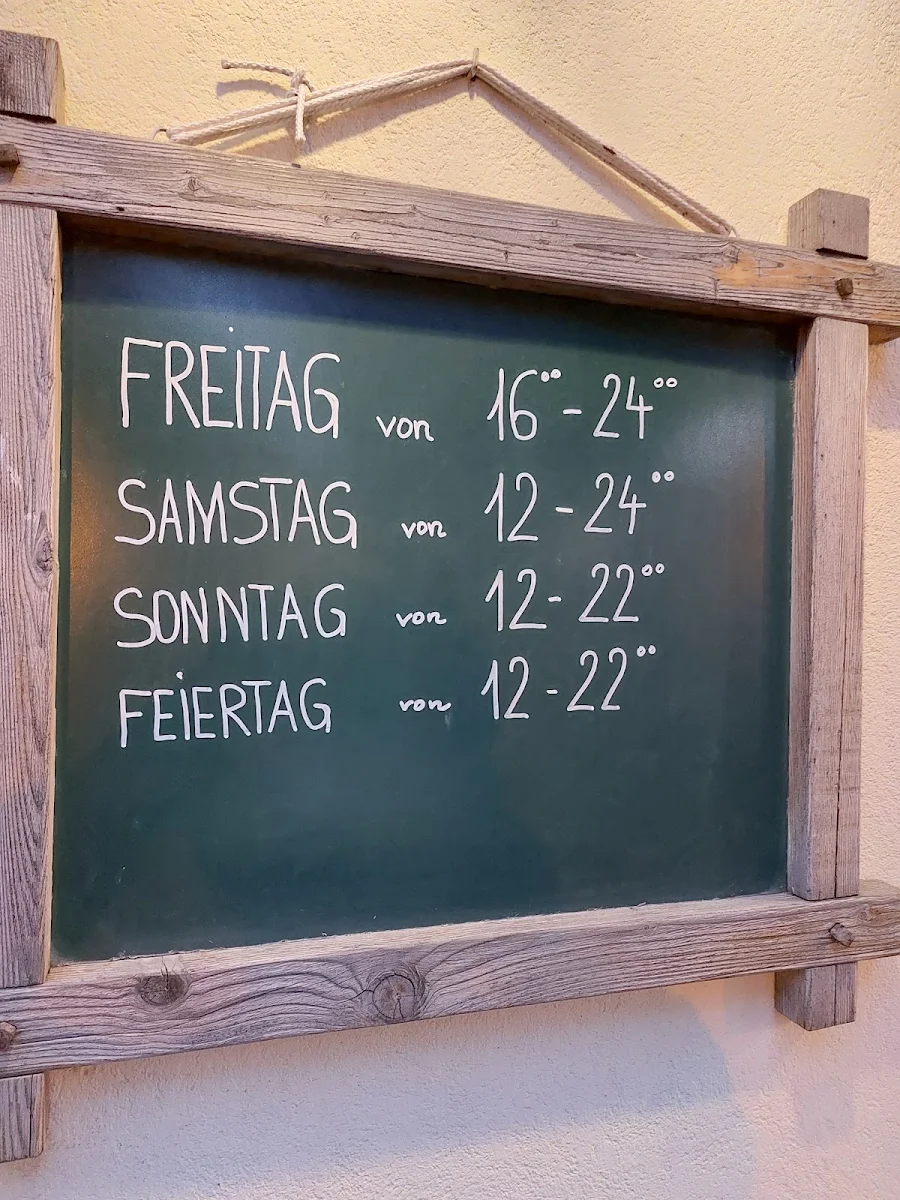 FREiTAG von 16°° - 24°°
SAMSTAG von 12 - 24°°
SONNTAG von 12 - 22°°
FEiERTAG von 12 - 22°°